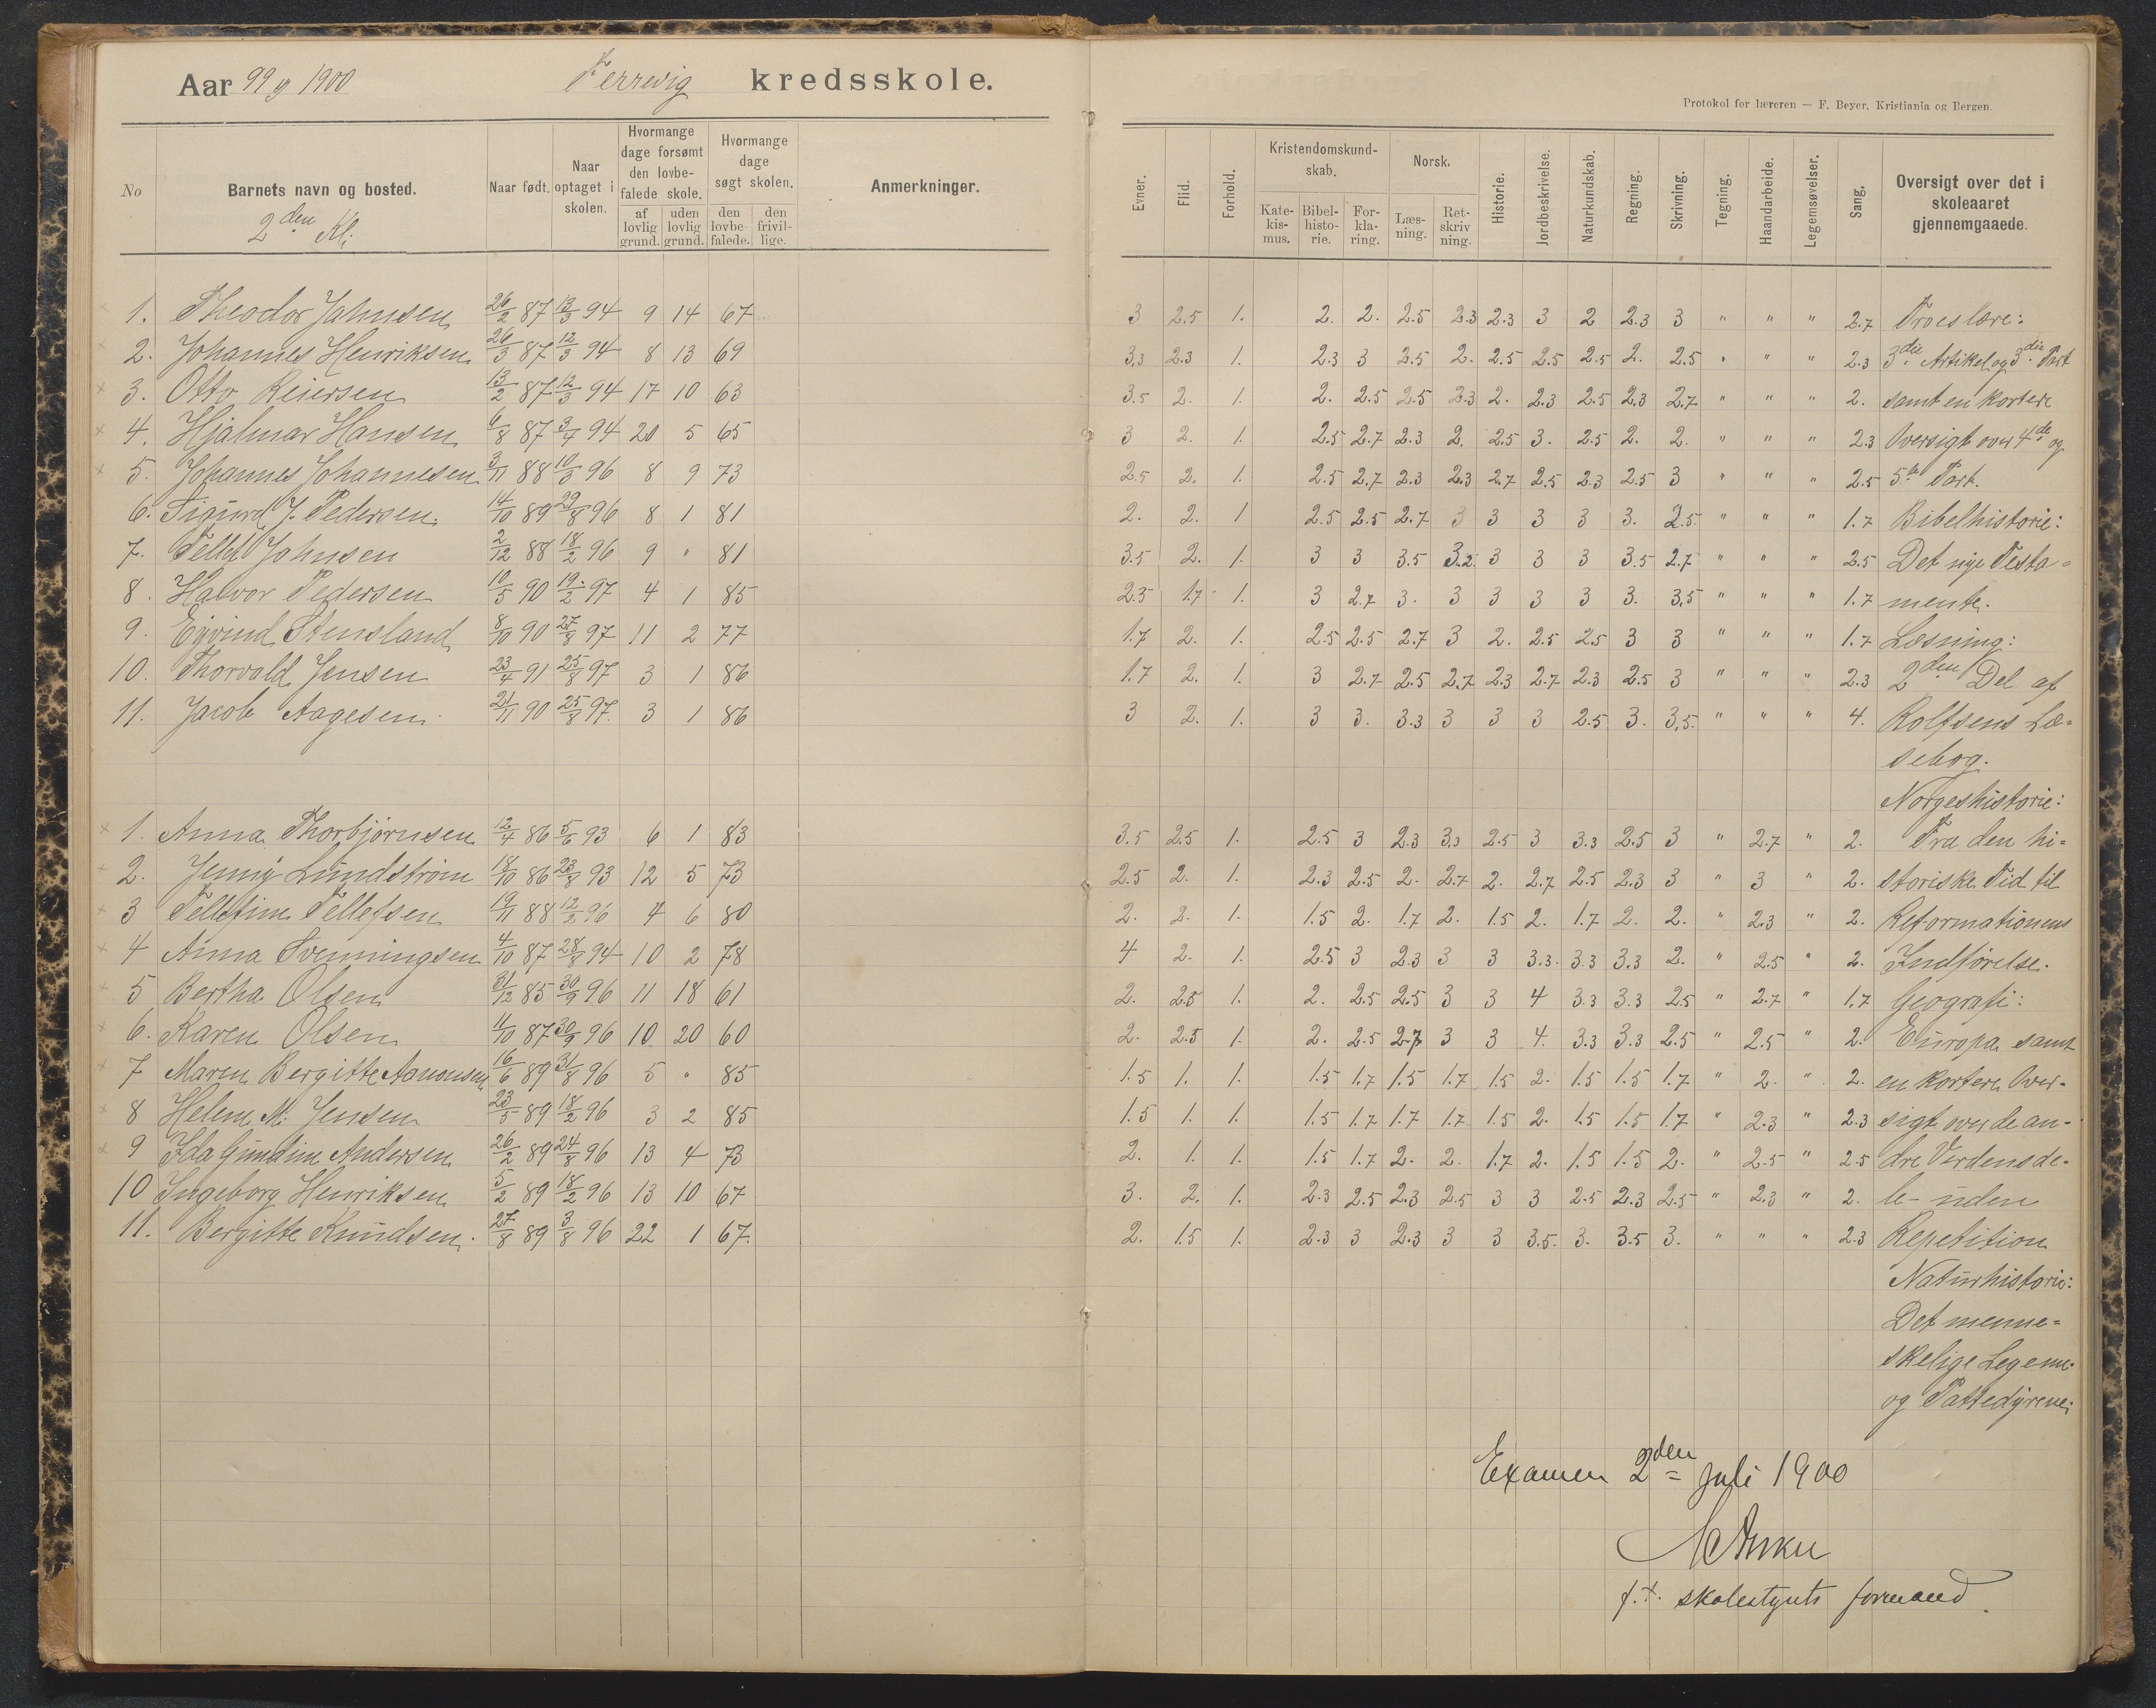 Aar 99 og 1900 Ferrevig kredsskole.
Protokol for læreren — F. Beyer, Kristiania og Bergen.
No Barnets navn og bosted. Naar født. Naar optaget i skolen. Hvormange dage forsømt den lovbefalede skole. af lovlig grund. uden lovlig grund. Hvormange dage søgt skolen. den lovbefalede. den frivillige. Anmerkninger.
2den Kl:
Evner. Flid. Forhold. Kristendomskundskab. Katekismus. Bibelhistorie. Forklaring. Norsk. Læsning. Retskrivning. Historie. Jordbeskrivelse. Naturkundskab. Regning. Skrivning. Tegning. Haandarbeide. Legemsøvelser. Sang. Oversigt over det i skoleaaret gjennemgaaede.
1. Theodor Jahnsen 26/2 87 13/3 94 9 14 67 3 2.5 1. 2. 2. 2.5 2.3 2.3 3 2 2.3 3 " " " 2.7 Troeslære:
2. Johannes Henriksen 26/3 87 12/3 94 8 13 69 3.3 2.3 1. 2.3 3 2.5 2. 2.5 2.5 2.5 2. 2.5 " " " 2.3 3die Artikel og 3die Part
3. Otto Reiersen 13/2 87 12/3 94 17 10 63 3.5 2. 1. 2. 2.5 2.5 2.3 2. 2.3 2.5 2.3 2.7 " " " 2. samt en kortere
4. Hjalmar Hansen 6/8 87 3/7 94 20 5 65 3 2. 1. 2.5 2.7 2.3 2. 2.5 3. 2.5 2. 2. " " " 2.3 Oversigt over 4de og
5. Johannes Johannesen 3/11 88 10/3 96 8 9 73 2.5 2. 1. 2.5 2.7 2.3 2.3 2.7 2.5 2.3 2.5 3 " " " 2.5 5te Part.
6. Sigurd J. Pedersen. 14/10 89 29/8 96 8 1 81 2. 2. 1 2.5 2.5 2.7 3 3 3 3 3. 2.5. " " " 1.7 Bibelhistorie:
7. Tellef Jahnsen 2/12 88 18/2 96 9 " 81 3.5 2. 1. 3 3 3.5 3.2 3 3 3 3.5 2.7 " " " 2.5 Det nye Testa=
8. Halvor Pedersen 10/5 90 19/2 97 4 1 85 2.5 1.7 1. 3 2.7 3. 3 3 3 3 3. 3.5 " " " 1.7 mente.
9. Eyvind Stensland 8/10 90 27/8 97 11 2 77 1.7 2. 1. 2.5 2.5 2.7 3 2. 2.5 2.5 3 3 " " " 1.7 Læsning:
10. Thorvald Jensen 23/4 91 25/8 97 3 1 86 1.7 2. 1. 3 2.7 2.5 2.7 2.3 2.7 2.3 2.5 3 " " " 2.3 2den Del af
11. Jacob Aagesen. 21/11 90 25/8 97. 3 1 86 3 2. 1. 3 3. 3.3 3 3 3 2.5 3. 3,5. " " " 4. Rolfsens Læ=
sebog.
Norgeshistorie:
1. Anna Thorbjørnsen 12/4 86 5/6 93 6 1 83 3.5 2.5 1. 2.5 3 2.3 3.3 2.5 3 3.3 2.5 3 " 2.7 " 2. Fra den hi=
2. Jenny Lundstrøm 18/10 86 23/8 93 12 5 73 2.5 2. 1. 2.3 2.5 2. 2.7 2. 2.7 2.5 2.3 3 " 3 " 2. storiske Tid til
3 Tellefine Tellefsen 19/11 88 12/2 96 4 6 80 2. 2. 1. 1.5 2. 1.7 2. 1.5 2. 1.7 2. 2. " 2.3 " 2. Reformationens
4 Anna Svenningsen 4/10 87 28/8 94 10 2 78 4 2. 1. 2.5 3 2.3 3 3 3.3. 3.3 3.3 2. " 2.5 " 2. Indførelse.
5 Bertha Olsen 31/12 85 30/9 96 11 18 61 2. 2.5 1. 2. 2.5 2.5 3 3 4 3.3 3.3 2.5 " 2.7 " 1.7 Geografi:
6. Karen Olsen 11/10 87 30/9 96 10 20 60 2. 2.5 1. 2. 2.5 2.7 3 3 4. 3.3 3.3 2.5 " 2.5 " 2. Europa samt
7 Maren Bergitte Aanonsen 16/6 89 31/8 96 5 " 85 1.5 1. 1. 1.5 1.7 1.5 1.7 1.5 2. 1.5 1.5 1.7 " 2. " 2. en kortere Over-
8 Helene M. Jensen 23/5 89 18/2 96 3 2 85 1.5 1. 1. 1.5 1.7 1.7 1.7 1.5 2. 1.5 1.5 1.7 " 2.3 " 2.3 sigt over de an-
9 Ida Gundine Andersen 26/2 89 24/8 96 13 4 73 2. 1. 1. 1.5 1.7 2. 2. 1.7 2. 1.5 1.5 2. " 2.5 " 2.5 dre Verdensde-
10 Ingeborg Henriksen 5/2 89 18/2 96 13 10 67 3. 2. 1. 2.3 2.5 2.3 2.5 3 3 2.5 2.3 2.5 " 2.3 " 2. le- uden
11. Bergitte Knudsen. 27/8 89 3/8 96 22 1 67. 2. 1.5 1. 2.3 3 2.3 3 3 3.5. 3. 3.5 3. " " " 2.3 Repetition
Naturhistorie:
Det menne=
skelige Legeme
og Pattedyrene:
Examen 2den Juli 1900
f.t. skolestyrets formand.